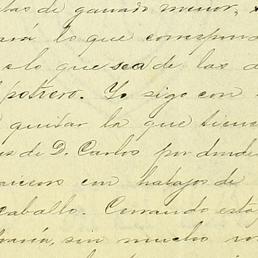 de ganado menor,
lo que correspond
lo que sea de las
potrero. Yo sigo con
quitar la que tiene
de D. Carlos por donde
con hatajos de
caballo. Cerrando esta
sin mucho